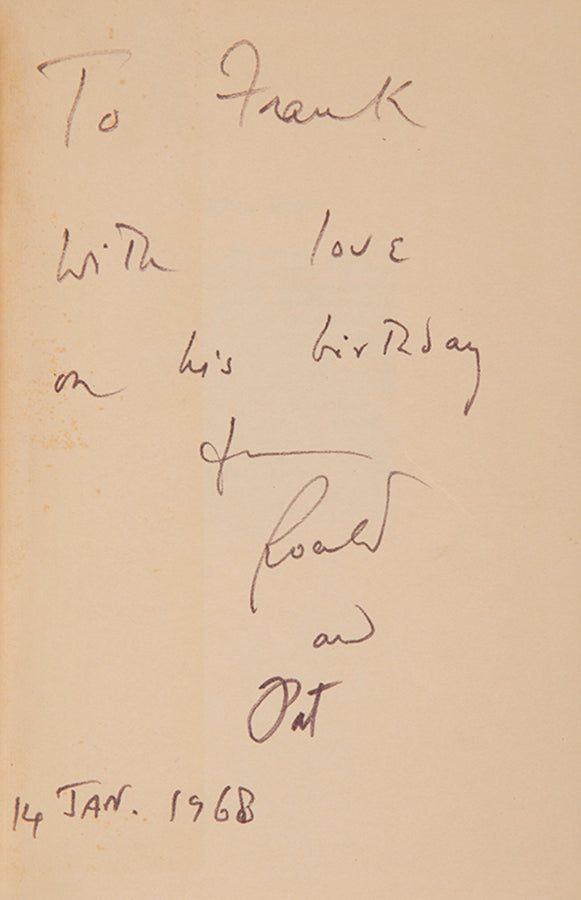 To Frank
with love
on his birthday
from
Roald
and
Pat
14 JAN. 1968